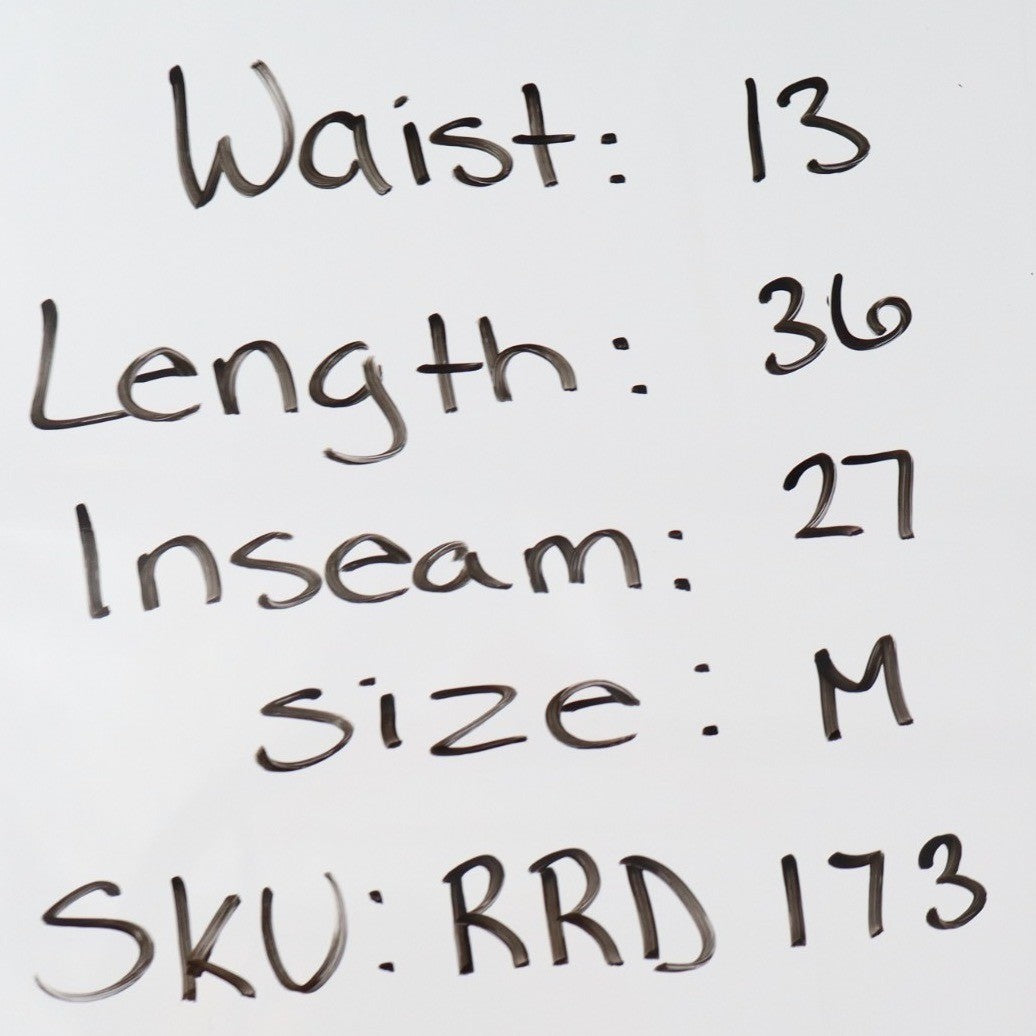 Waist: 13
Length: 36
Inseam: 27
Size: M
SKU: RRD 173